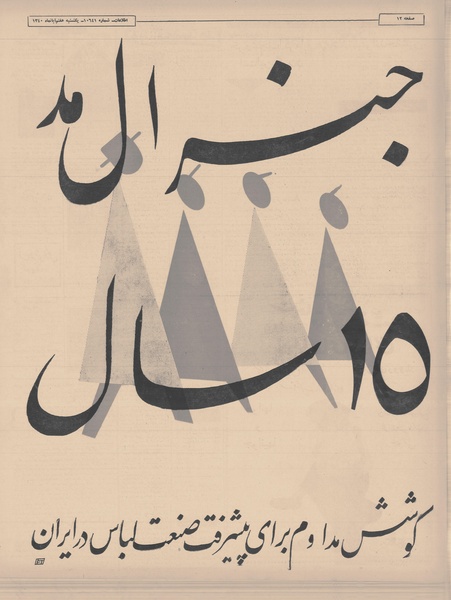 صفحه ۱۲
اطلاعات شماره ۱۰۶۴۱ـ یکشنبه هفتم آبانماه ۱۳۴۰
جنرال مد
۱۵ سال
کوشش مداوم برای پیشرفت صنعت لباس در ایران